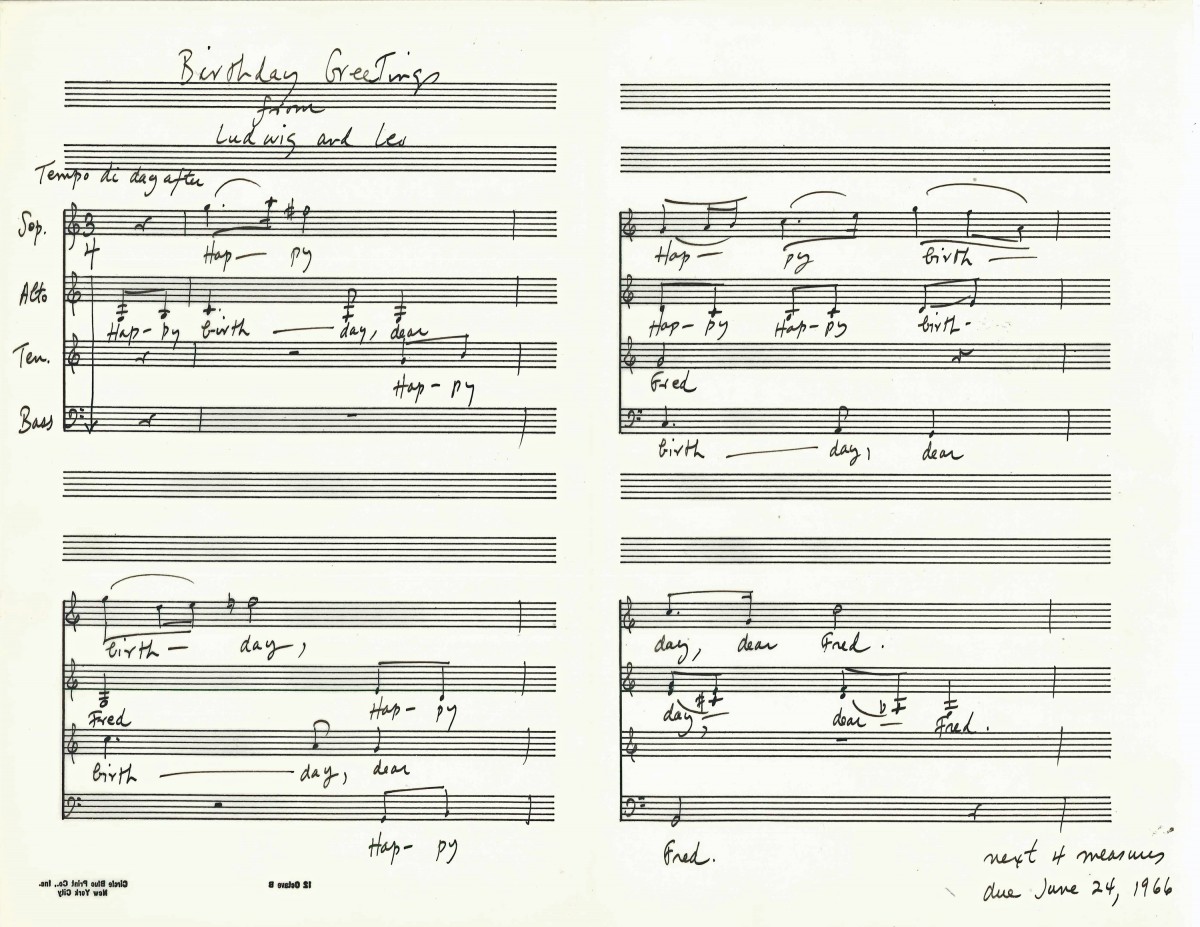 Birthday Greetings
from
Ludwig and Leo
Tempo di day after
Sop. 3
4 Hap— py
Alto
Hap- py birth — day, dear
Ten.
Hap- py
Bass
birth — day,
Fred Hap- py
birth — day, dear
Hap- py
Hap— py birth —
Hap- py Hap- py birth-
Fred
birth — day, dear
day, dear Fred.
day, dear Fred.
Fred.
next 4 measures
due June 24, 1966
Circle Blue Print Co., Inc.
New York City
12 Octave B